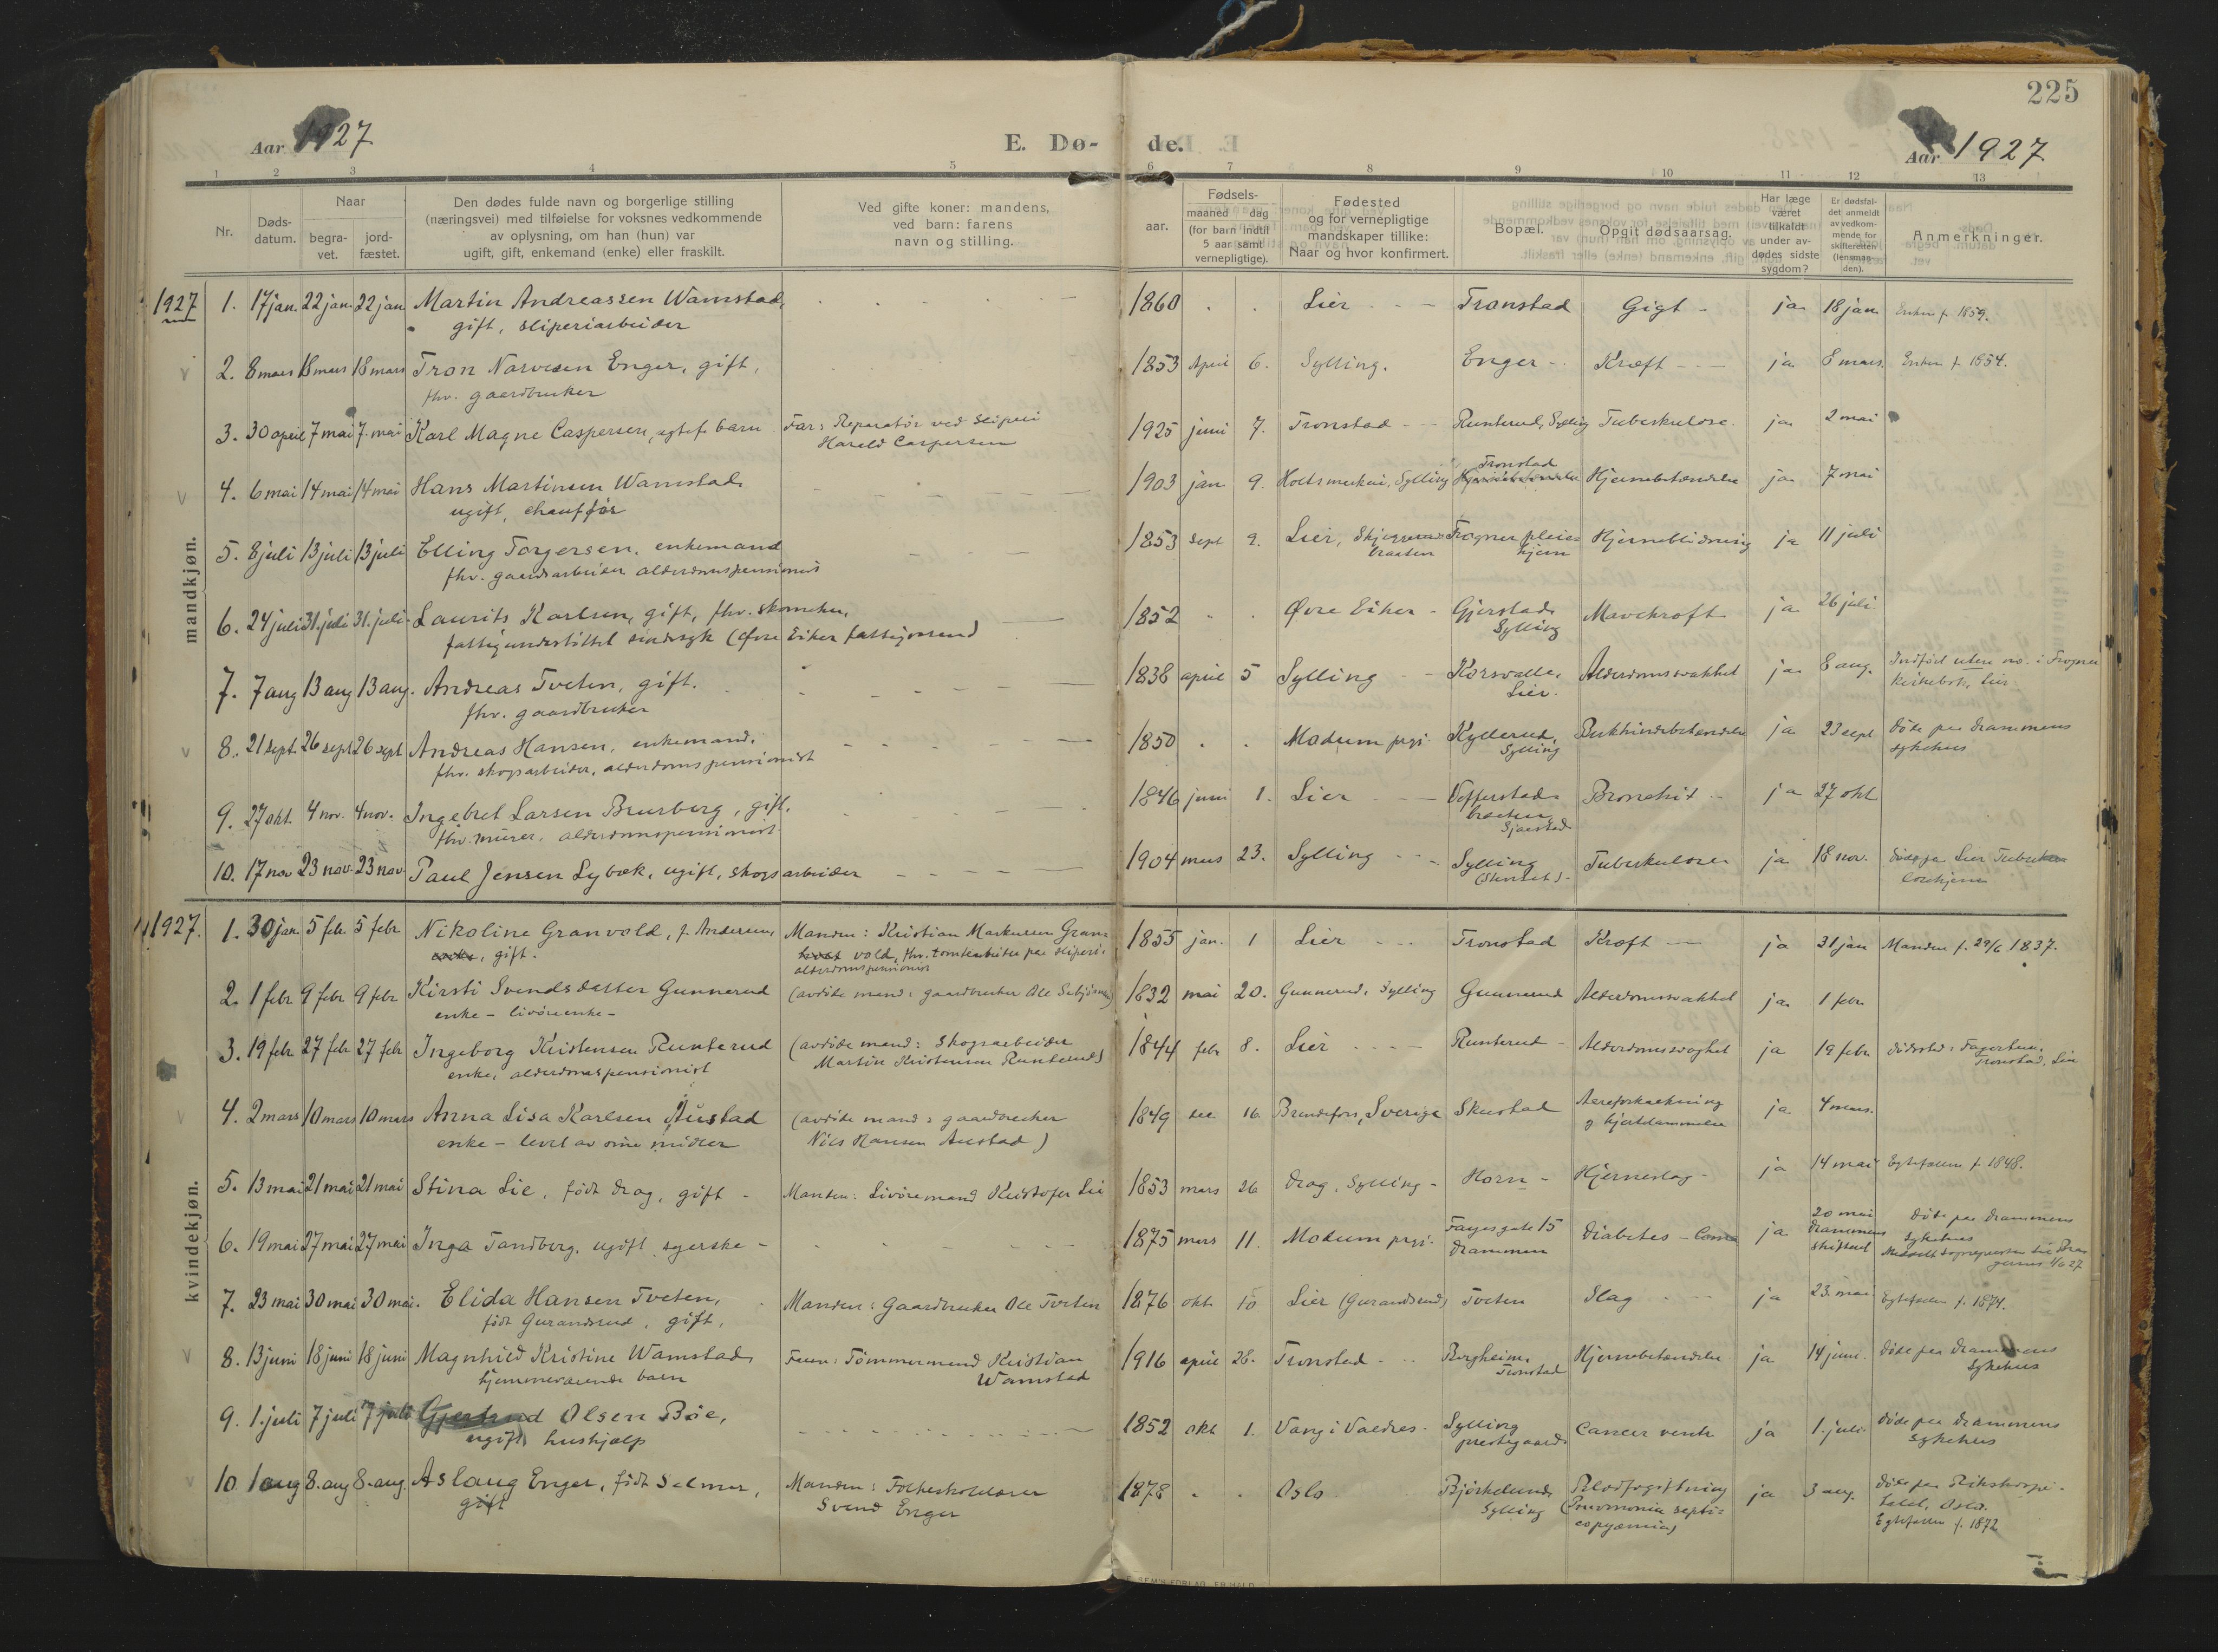 225
Aar 1927
E. Dø-
de.
Aar 1927
1 2 3 4 5 6 7 8 9 10 11 12 13
Nr.
Døds-
datum.
Naar
begra-
vet.
jord-
fæstet.
Den dødes fulde navn og borgerlige stilling
(næringsvei) med tilføielse for voksnes vedkommende
av oplysning, om han (hun) var
ugift, gift, enkemand (enke) eller fraskilt.
Ved gifte koner: mandens,
ved barn: farens
navn og stilling.
aar.
Fødsels-
maaned dag
(for barn indtil
5 aar samt
vernepligtige).
Fødested
og for vernepligtige
mandskaper tillike:
Naar og hvor konfirmert.
Bopæl.
Opgit dødsaarsag.
Har læge
været
tilkaldt
under av-
dødes sidste
sygdom?
Er dødsfal-
det anmeldt
av vedkom-
mende for
skifteretten
(lensman-
den).
Anmerkninger.
mandkjøn.
1927 1. 17 jan. 22 jan. 22 jan Martin Andreassen Wamstad, 1860 Lier Tronstad Gigt ja 18 jan Enken f. 1859.
gift, sliperiarbeider
2. 8 mars 18 mars 18 mars Tron Narvesen Enger, gift, 1853 April 6. Sylling. Enger Kræft ja 8 mars. Enken f. 1854.
fhv. gaardbruker
3. 30 april 7 mai 7. mai Karl Magne Caspersen, egtef. barn Far: Reparatør ved sliperi 1925 juni 7. Tronstad Runterud, Sylling Tuberkulose. ja 2 mai
Harald Caspersen
4. 6 mai 14 mai 14 mai Hans Martinsen Wamstad 1903 jan 9. Sylling Tronstad Hjernebetændelse ja 7 mai
ugift, chauffør
5. 8 juli 13 juli 13 juli Elling Torgersen, enkemand 1853 sept 9. Lier, Frogner pleie= Hjerneblødning ja 11 juli
braaten hjem
fhv. gaardsarbeider alderdomspensionist
6. 24 juli 31. juli 31. juli Laurits Karlsen, gift, fhv. skomaker, 1852 Øvre Eiker Gjerstad, Mavekræft ja 26 juli.
Sylling
fattigunderstøttet sindssyk (Øvre Eiker fattigvæsend)
7. 7 aug 13 aug 13 aug. Andreas Tveten, gift. 1838 april 5 Sylling Korsvalle, Alderdomssvakhet ja 8 aug. Indført uten no. i Frogner
Lier. kirkebok, Lier.
fhv. gaardbruker
8. 21 sept. 26 sept 26 sept Andreas Hansen, enkemand, 1850 Modum prgj. Kyllerud, ja 23 sept Døde paa Drammens
Sylling sykehus
fhv. skogsarbeider, alderdomspensionist
9. 27 okt. 4 nov. 4 nov. Ingebret Larsen Brurberg, gift. 1846 juni 1. Lier Bronchit ja 27 okt
braaten
Sjaastad
fhv. murer, alderdomspensionist
10. 17 nov 23 nov. 23 nov Paul Jensen Lybæk, ugift, skogsarbeider 1904 mars 23. Sylling Sylling Tuberkulose ja 18 nov. Døde paa Lier Tuberku=
losehjem
kvindekjøn.
1927. 1. 30 jan. 5 feb. 5 febr Nikoline Granvold, f. Andersen, Manden: Kristian Markussen Gran= 1855 jan. 1 Lier Tronstad Kræft ja 31 jan Manden f. 29/6 1837.
enke, gift. vold, fhv. tomtearbeider paa sliperi.
alderdomspensionist
2. 1 febr 9 febr 9 febr Kirsti Svendsdatter Gunnerud (avdøde mand: gaardbruker Ole 1832 mai 20. Gunnerud, Sylling Gunnerud Alderdomssvakhet ja 1 febr
enke - livøreenke -
3. 19 febr 27 febr 27 febr Ingeborg Kristensen Runterud (avdøde mand: skogsarbeider 1844 febr 8. Lier Runterud Alderdomssvaghet ja 19 febr dødssted: Fagertun,
Martin Kristensen Runterud) Tronstad, Lier
enke, alderdomspensionist
4. 2 mars 10 mars 10 mars Anna Lisa Karlsen Austad (avdøde mand: gaardbruker 1849 dec 16 Brundsfors, Sverige Skustad Aareforkalkning ja 4 mars.
enke - levet av sine midler Nils Hansen Austad) og hjertelammelse
5. 13 mai 21 mai 21 mai Stina Lie, født Drag, gift - Manden: Livøremand Kristofer Lie 1853 mars 26 Drag, Sylling - Horn - Hjerneslag - ja 14 mai Egtefællen f. 1848.
6. 19 mai 27 mai 27 mai Inga Tandberg, ugift syerske - 1875 mars 11. Modum prgj. Fayesgate 15 Diabetes - Coma ja 20 mai Døde paa Drammens
Drammen Drammens sykehus
skifteret
7. 23 mai 30 mai 30 mai. Elida Hansen Tveten, Manden: Gaardbruker Ole Tveten 1876 okt. 10 Lier (Gurandsrud) Tveten Slag ja 23. mai Egtefællen f. 1874.
født Gurandsrud, gift,
8. 13 juni 18 juni 18 juni Magnhild Kristine Wamstad, Faren: Tømmermand Kristian 1916 april 28. Tronstad Bergheim, Hjernebetændelse ja 14 juni. Døde paa Drammens
hjemmeværende barn Wamstad Tronstad sykehus
9. 1. juli 7 juli 7 juli Gjertrud Olsen Bøe, 1852 okt 1. Vang i Valdres Sylling Cancer ventr ja 1. juli Døde paa Drammens
ugift, hushjælp prestegaard sykehus
10 1 aug 8. aug 8. aug. Aslaug Enger, født Selmer, Manden: Folkeskolelærer 1878 Oslo Bjørkelund, Blodforgiftning ja 3 aug. Døde paa Rikshospi-
gift Svend Enger Sylling (Pneumonia septi= talet, Oslo.
copyæmia) Egtefællen f. 1872